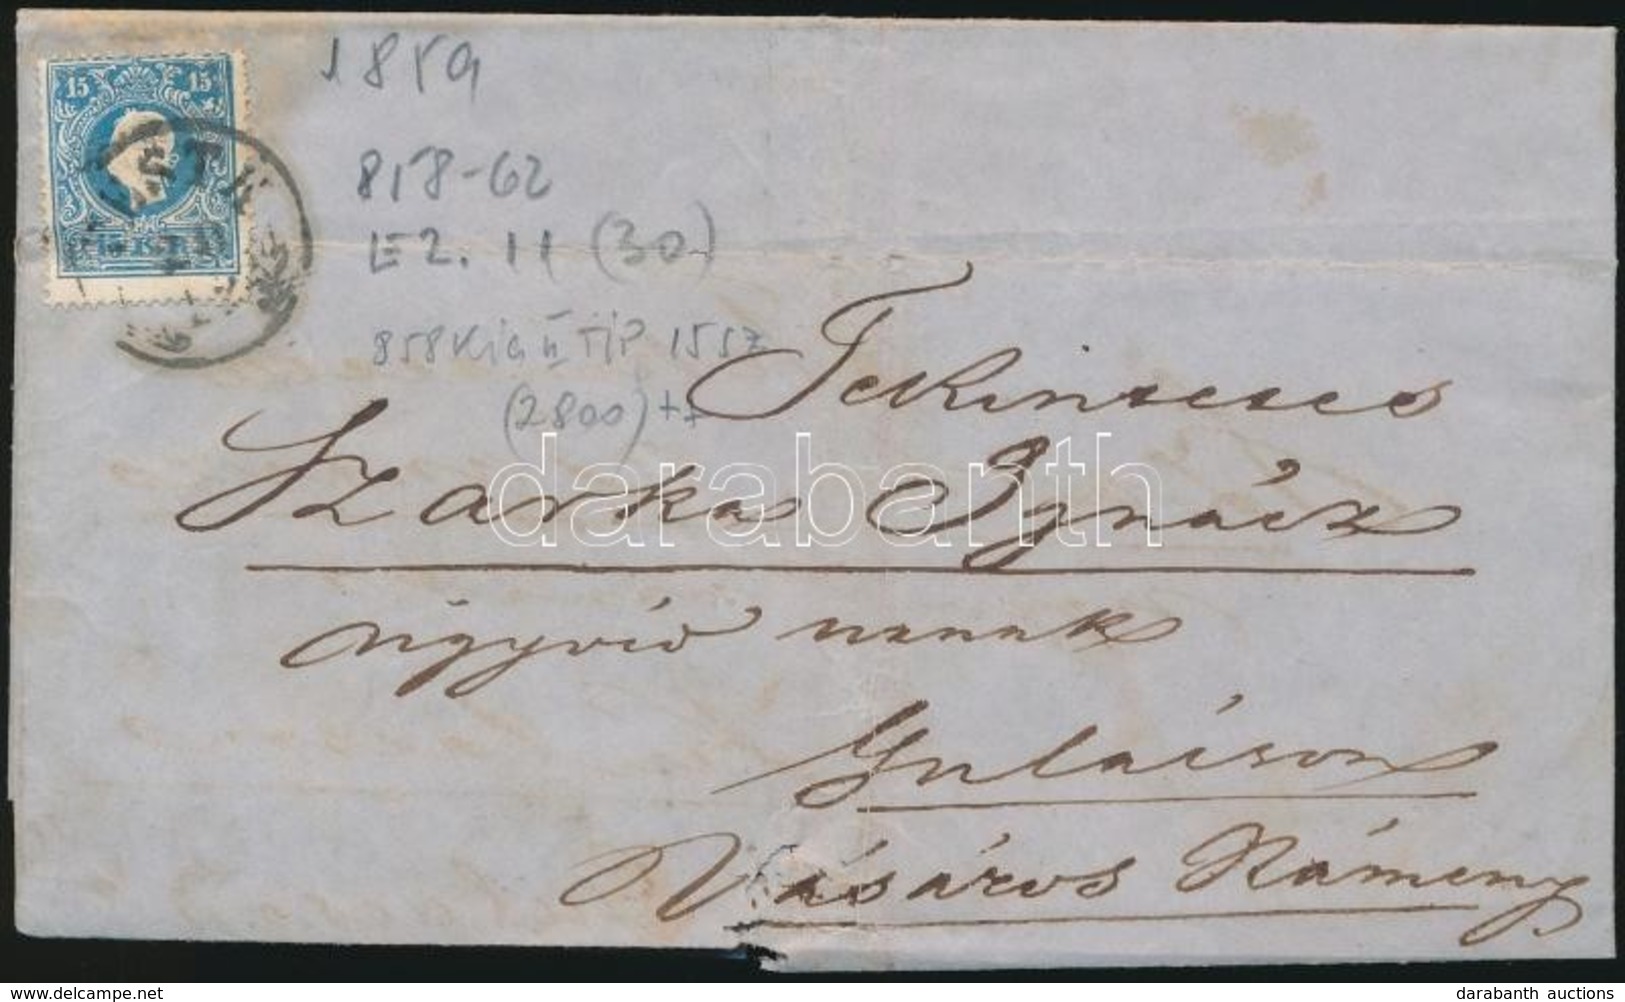 15 15
1859
858-62
LEZ. 11 (30)
858 Kia II TIP 15sz
(2800) ++
PESTH
Tekintetes
Szarka Ignácz
ügyvéd urnak
Gulácson
Vásáros Námény
darabanth
www.delcampe.net
darabanth auctions